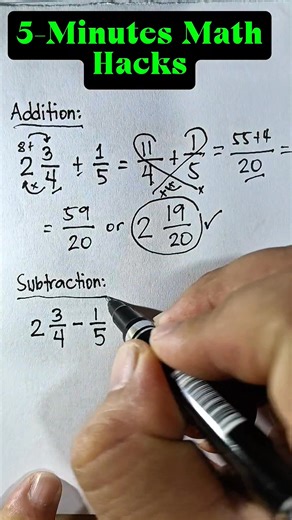 5-Minutes Math
Hacks
Addition:
8+
2 3/4 + 1/5 = 11/4 + 1/5 = 55+4/20 =
= 59/20 or 2 19/20 ✓
Subtraction:
2 3/4 - 1/5